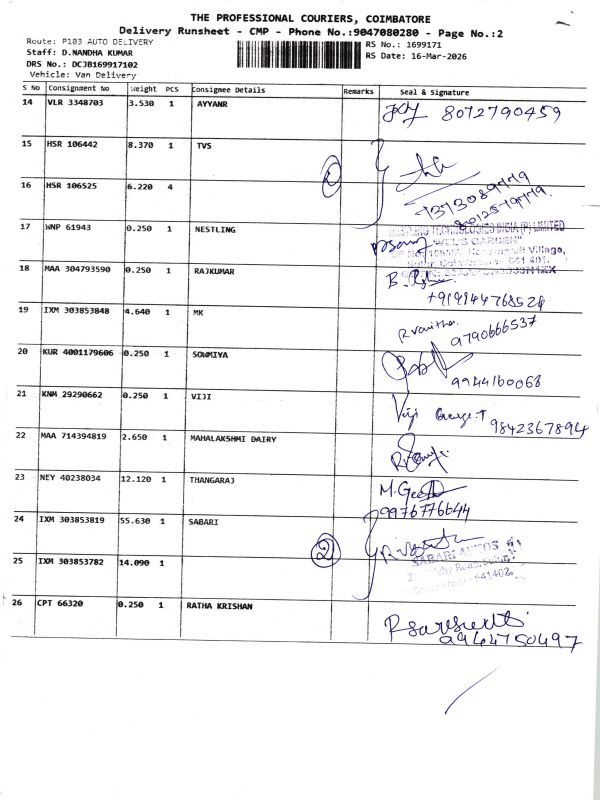 THE PROFESSIONAL COURIERS, COIMBATORE
Delivery Runsheet - CMP - Phone No.:9047080280 - Page No.:2
Route: P103 AUTO DELIVERY
RS No.: 1699171
Staff: D.NANDHA KUMAR
RS Date: 16-Mar-2026
DRS No.: DCJB169917102
Vehicle: Van Delivery
S No Consignment No Weight PCS Consignee Details Remarks Seal & Signature
14 VLR 3348703 3.530 1 AYYANR 8072790459
15 HSR 106442 8.370 1 TVS
16 HSR 106525 6.220 4
17 WNP 61943 0.250 1 NESTLING
18 MAA 304793590 0.250 1 RAJKUMAR
19 IXM 303853848 4.640 1 MK 9790666537
20 KUR 4001179606 0.250 1 SOWMIYA 9944160068
21 KNM 29290662 0.250 1 VIJI Viji George.T 9842367894
22 MAA 714394819 2.650 1 MAHALAKSHMI DAIRY
23 NEY 40238034 12.120 1 THANGARAJ 9976776644
24 IXM 303853819 55.630 1 SABARI ② SABARI AUTOS
25 IXM 303853782 14.090 1
26 CPT 66320 0.250 1 RATHA KRISHAN 9964750497